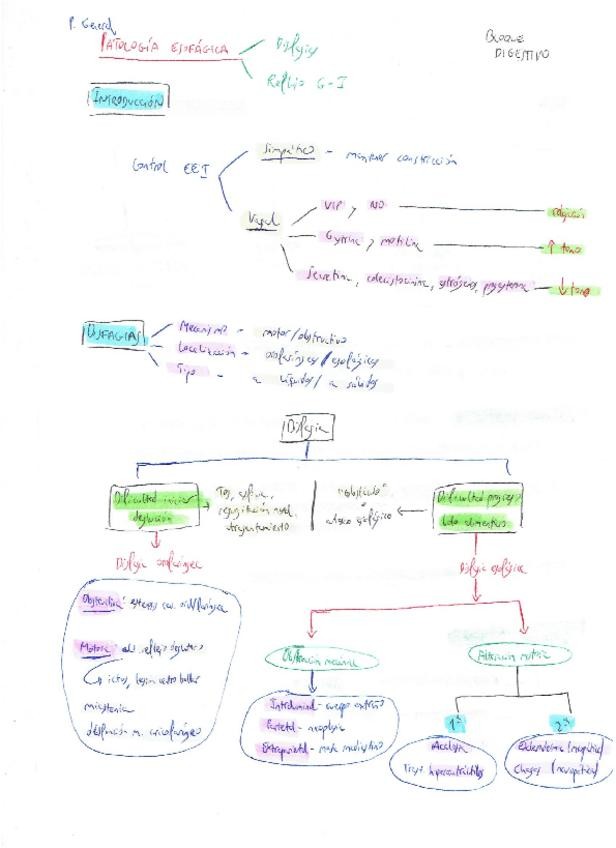 P. General
PATOLOGÍA ESOFÁGICA
Disfagias
Reflujo G-I
BLOQUE
DIGESTIVO
INTRODUCCIÓN
Control EEI
Simpático - mantener constricción
Vagal
VIP, NO
relajación
Gastrina, motilina
↑ tono
Secretina, colecistocinina, estrógenos, progesterona
↓ tono
DISFAGIAS
Mecanismo - motor/obstructivo
Localización - orofaríngeas/esofágicas
Tipo - a líquidos/a sólidos
Disfagia
Dificultad iniciar
deglución
Tos, asfixia,
regurgitación nasal,
atragantamiento
"obstáculo"
atasco esofágico
Dificultad progreso
bolo alimenticio
Disfagia orofaríngea
Disfagia esofágica
Obstructiva:
Motora: alt. reflejo deglutorio
ictus, lesión
miastenia
disfunción m. cricofaríngeo
Obstrucción mecánica
Alteración motora
Intraluminal - cuerpo extraño
Parietal - neoplasia
Extraparietal - masa mediastino
1ª
2ª
Acalasia
Trast. hipercontráctiles
Esclerodermia (miopática)
Chagas (neuropática)